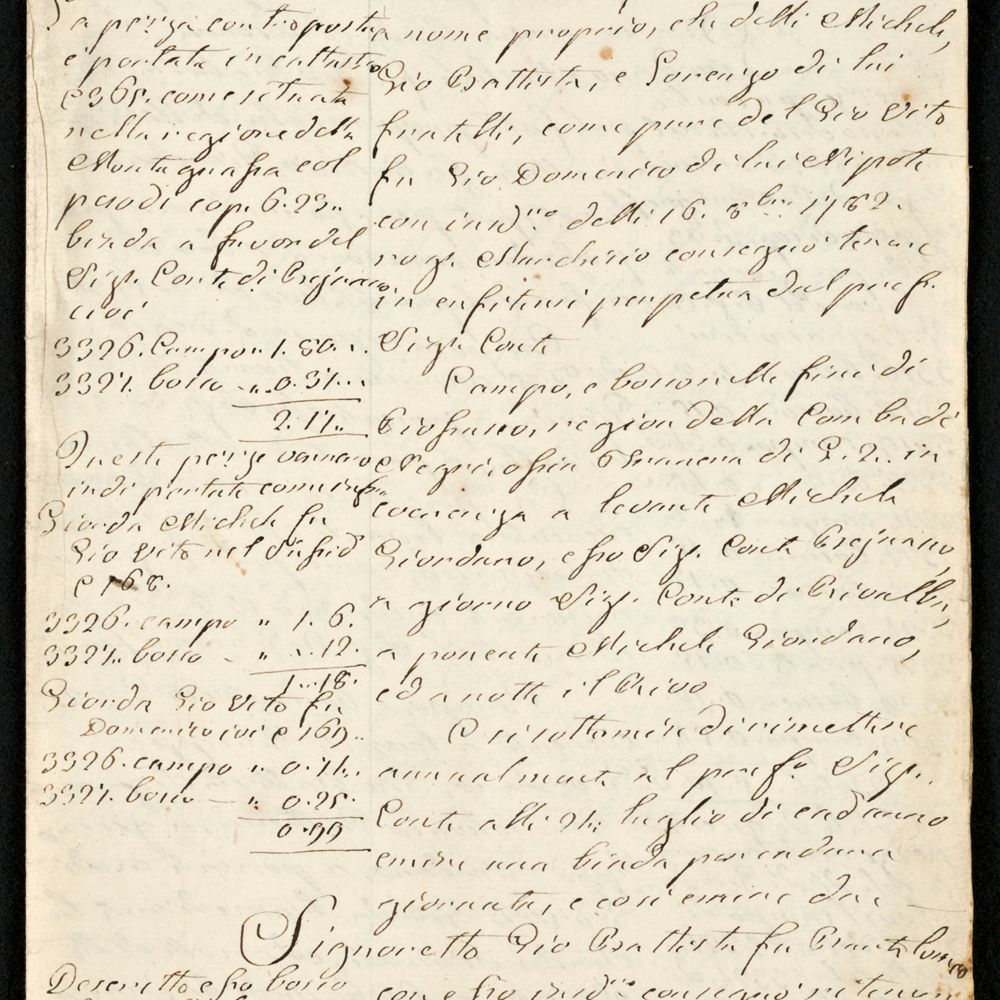 La pezza controposta
è portata in cattasto
c 365. come situata
nella regione della
Montagnassa col
peso di cop. 6. 23..
biada a favor del
Sigr. Conte di
cioè
3326. Campo n 1. 80...
3327. bosco .. 0. 37...
2. 17..
Queste pezze vennero
indi portate come infra
Giorda Michele fu
Gio Vito nel
c 168.
3326. campo " 1. 6.
3327. bosco - " ... 12.
1.. 18.
Giorda Gio Vito fu
Domenico ivi c 169..
3326. campo " 0. 74..
3327. bosco — " 0. 25.
0. 99
a nome proprio, che delli Michele,
Gio Battista, e Lorenzo di lui
fratelli, come pure del Gio Vito
fu Gio Domenico di lui Nipote
con delli 16. 8bre 1782.
rog. consegnò tenere
in enfiteusi perpetua dal pref.
Sigr. Conte
Campo, e bosco nelle fini di
regione della Comba de
Negri, ossia di G. 2.. in
coerenza a levante Michele
Giordano, e sso Sigr. Conte
a giorno Sigr. Conte di Rivalba,
a ponente Michele Giordano,
ed a notte il Rivo
E si sottomise di rimettere
annualmente al prefo. Sigr.
Conte alli luglio di cadauno
emine una biada per caduna
giornata, e così emine due
Signoretto Gio Battista fu
Descritto esso bosco
con esso consegnò ritenere